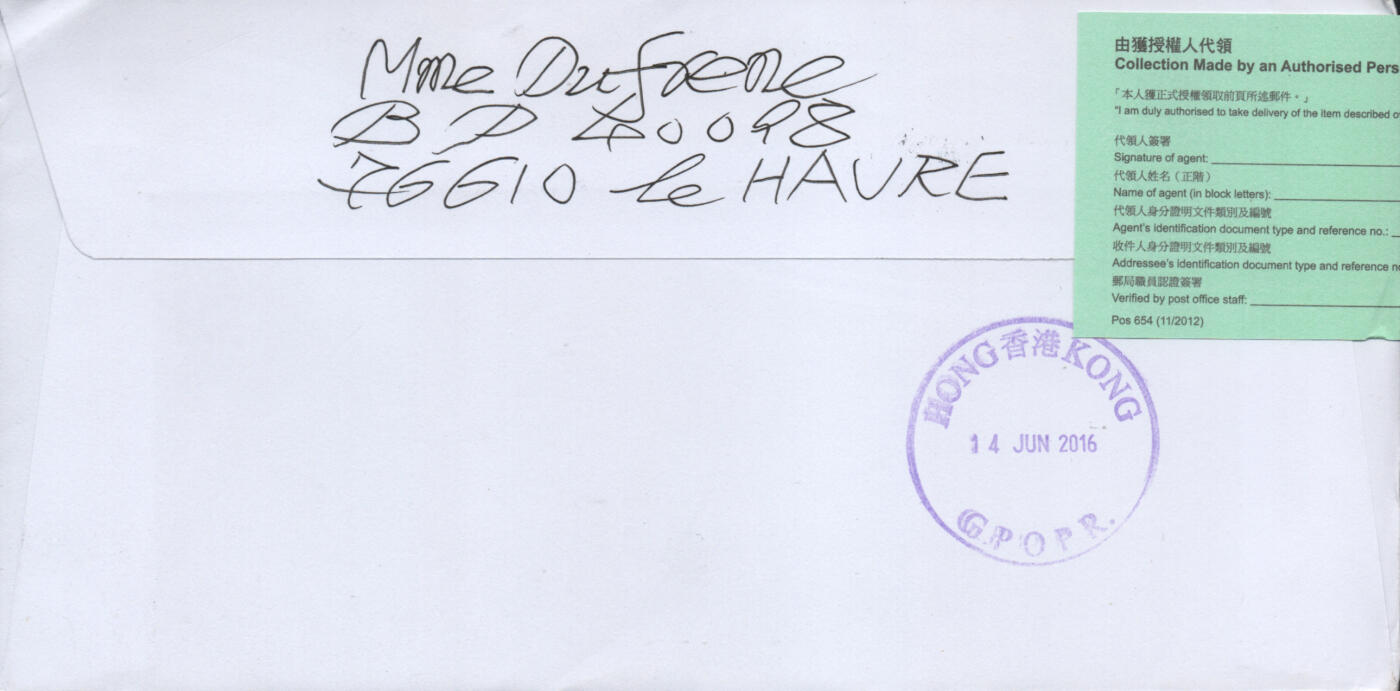 Mme Dufrene
BP 40098
76610 le HAVRE
由獲授權人代領
Collection Made by an Authorised Pers
「本人獲正式授權領取前頁所述郵件。」
"I am duly authorised to take delivery of the item described o
代領人簽署
Signature of agent:
代領人姓名（正階）
Name of agent (in block letters):
代領人身分證明文件類別及編號
Agent's identification document type and reference no.:
收件人身分證明文件類別及編號
Addressee's identification document type and reference no
郵局職員認證簽署
Verified by post office staff:
Pos 654 (11/2012)
HONG 香港 KONG
14 JUN 2016
G.P.O P.R.